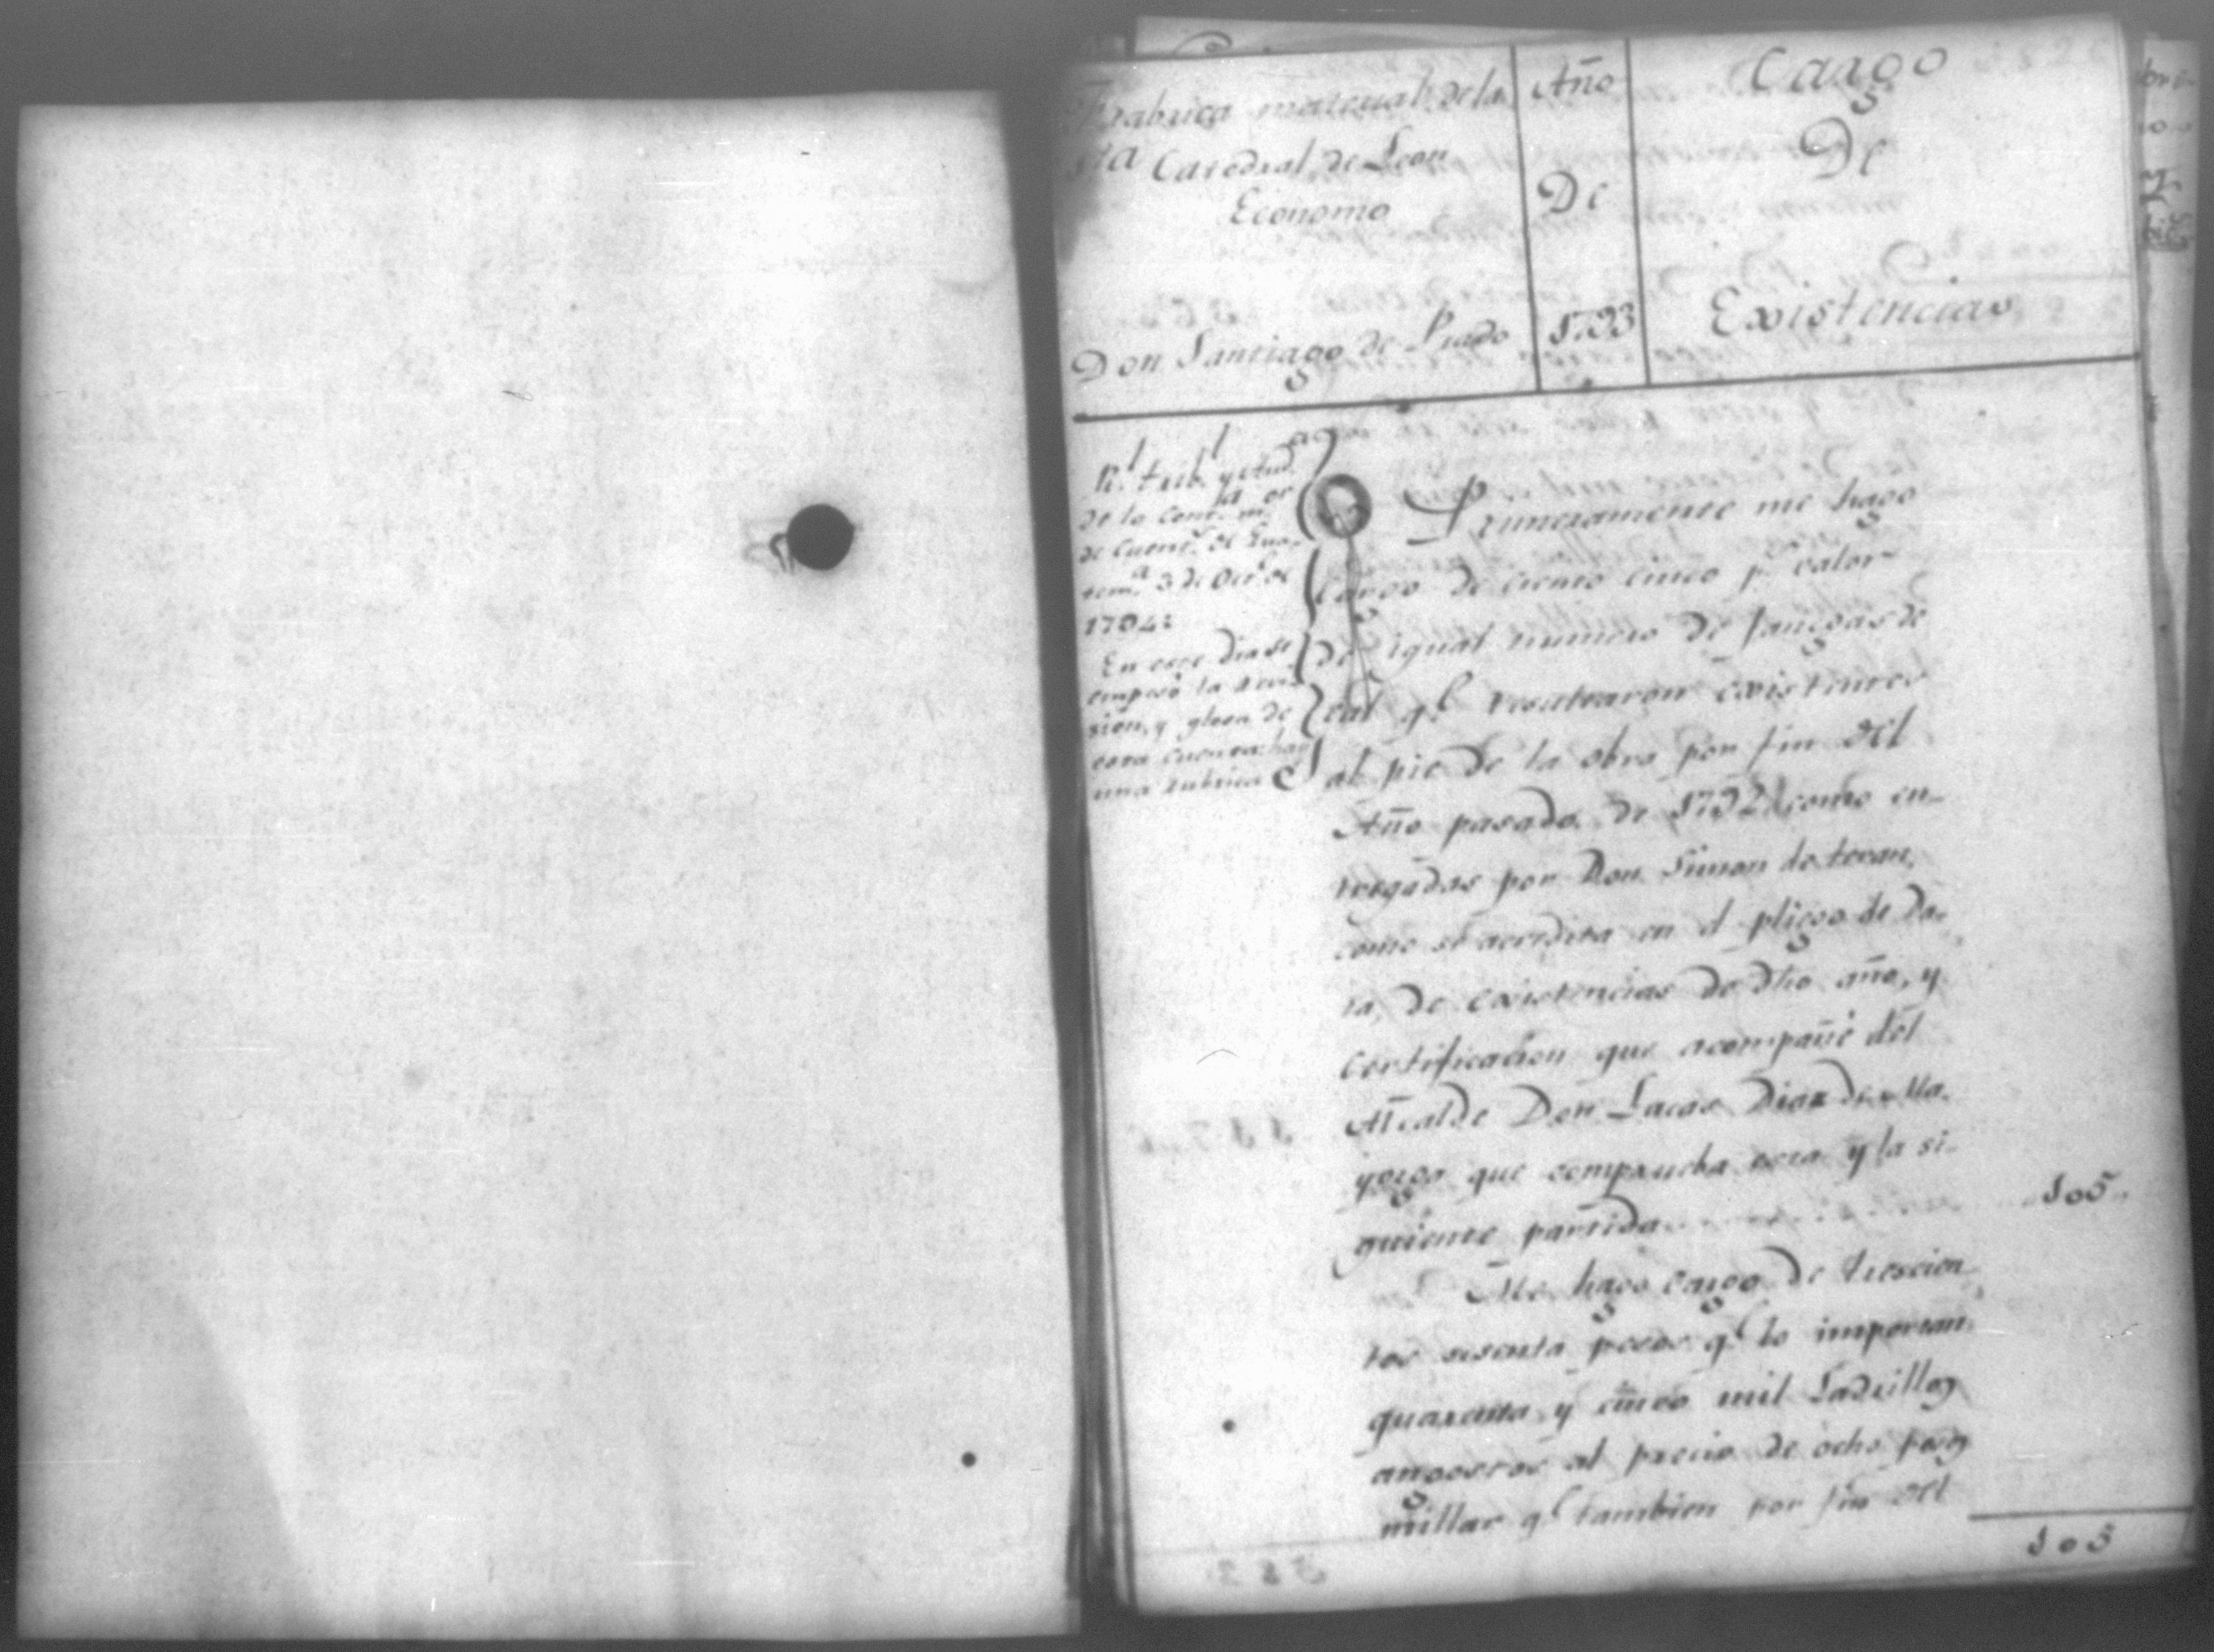 Frabrica material de la
Sta Catedral de Leon
Economo
Don Santiago de Prado
Año
De
1793
Cargo
De
Existencias
Rl. Trib. y Aud.
de la Conta. mor
de Cuents. de Gua-
tema. 3 de Octe. de
1794:
En este dia se
empesó la revi-
sion, y glosa de
esta Cuenta: hay
una rubrica
Primeramente me hago
Cargo de ciento cinco ps. valor
de igual numero de fanegas de
cal qe. resultaron existentes
al pie de la obra por fin del
Año pasado de 1792 como en-
tregadas por Don Simon de teran,
como se acredita en el pliego de Da-
ta, de existencias de dho año, y
Certificacion que acompañé del
Alcalde Don Lucas Diaz de Ma-
yorga que comprueba esta y la si-
guiente partida
105.
Me hago cargo de trescien-
tos sesenta pesos qe. lo importan
quarenta y cinco mil Ladrillos
angostos al precio de ocho pesos
millar qe. tambien por fin del
105